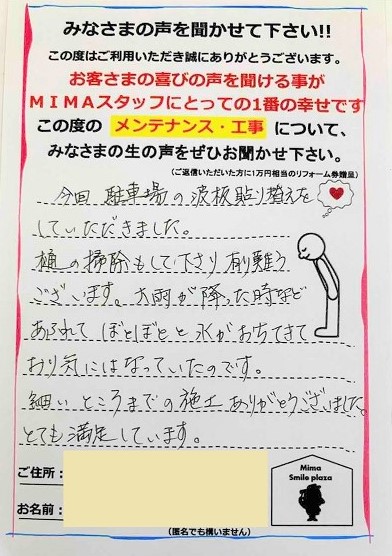 みなさまの声を聞かせて下さい!!
この度はご利用いただき誠にありがとうございます。
お客さまの喜びの声を聞ける事が
MIMAスタッフにとっての1番の幸せです
この度の メンテナンス・工事 について、
みなさまの生の声をぜひお聞かせ下さい。
(ご返信いただいた方に1万円相当のリフォーム券贈呈)
今回 駐車場の波板貼り替えを
していただきました。
樋の掃除もして下さり有難う
ございます。大雨が降った時など
あふれて ぼとぼとと水がおちてきて
おり気にはなっていたのです。
細いところまでの施工ありがとうございました。
とても満足しています。
ご住所:
お名前:
(匿名でも構いません)
Mima
Smile plaza